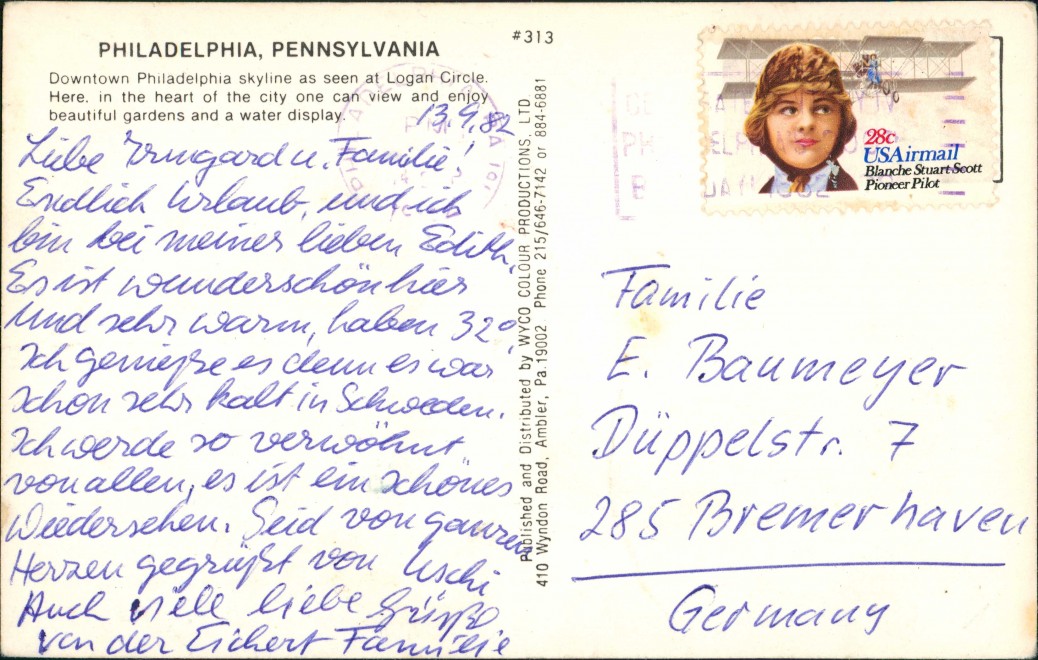 PHILADELPHIA, PENNSYLVANIA
Downtown Philadelphia skyline as seen at Logan Circle.
Here. in the heart of the city one can view and enjoy
beautiful gardens and a water display.
13.9.82
Liebe Irmgard u. Familie!
Endlich Urlaub, und ich
bin bei meiner lieben Edith.
Es ist wunderschön hier
und sehr warm, haben 32°,
ich genieße es denn es war
schon sehr kalt in Schweden.
Ich werde so verwöhnt
von allen, es ist ein schönes
Wiedersehen. Seid von ganzen
Herzen gegrüßt von Uschi
Auch viele liebe Grüße
von der Eichert Familie
#313
Published and Distributed by WYCO COLOUR PRODUCTIONS, LTD.
410 Wyndon Road, Ambler, Pa.19002 Phone 215/646-7142 or 884-6881
28c
USAirmail
Blanche Stuart Scott
Pioneer Pilot
Familie
E. Baumeyer
Düppelstr. 7
285 Bremerhaven
Germany